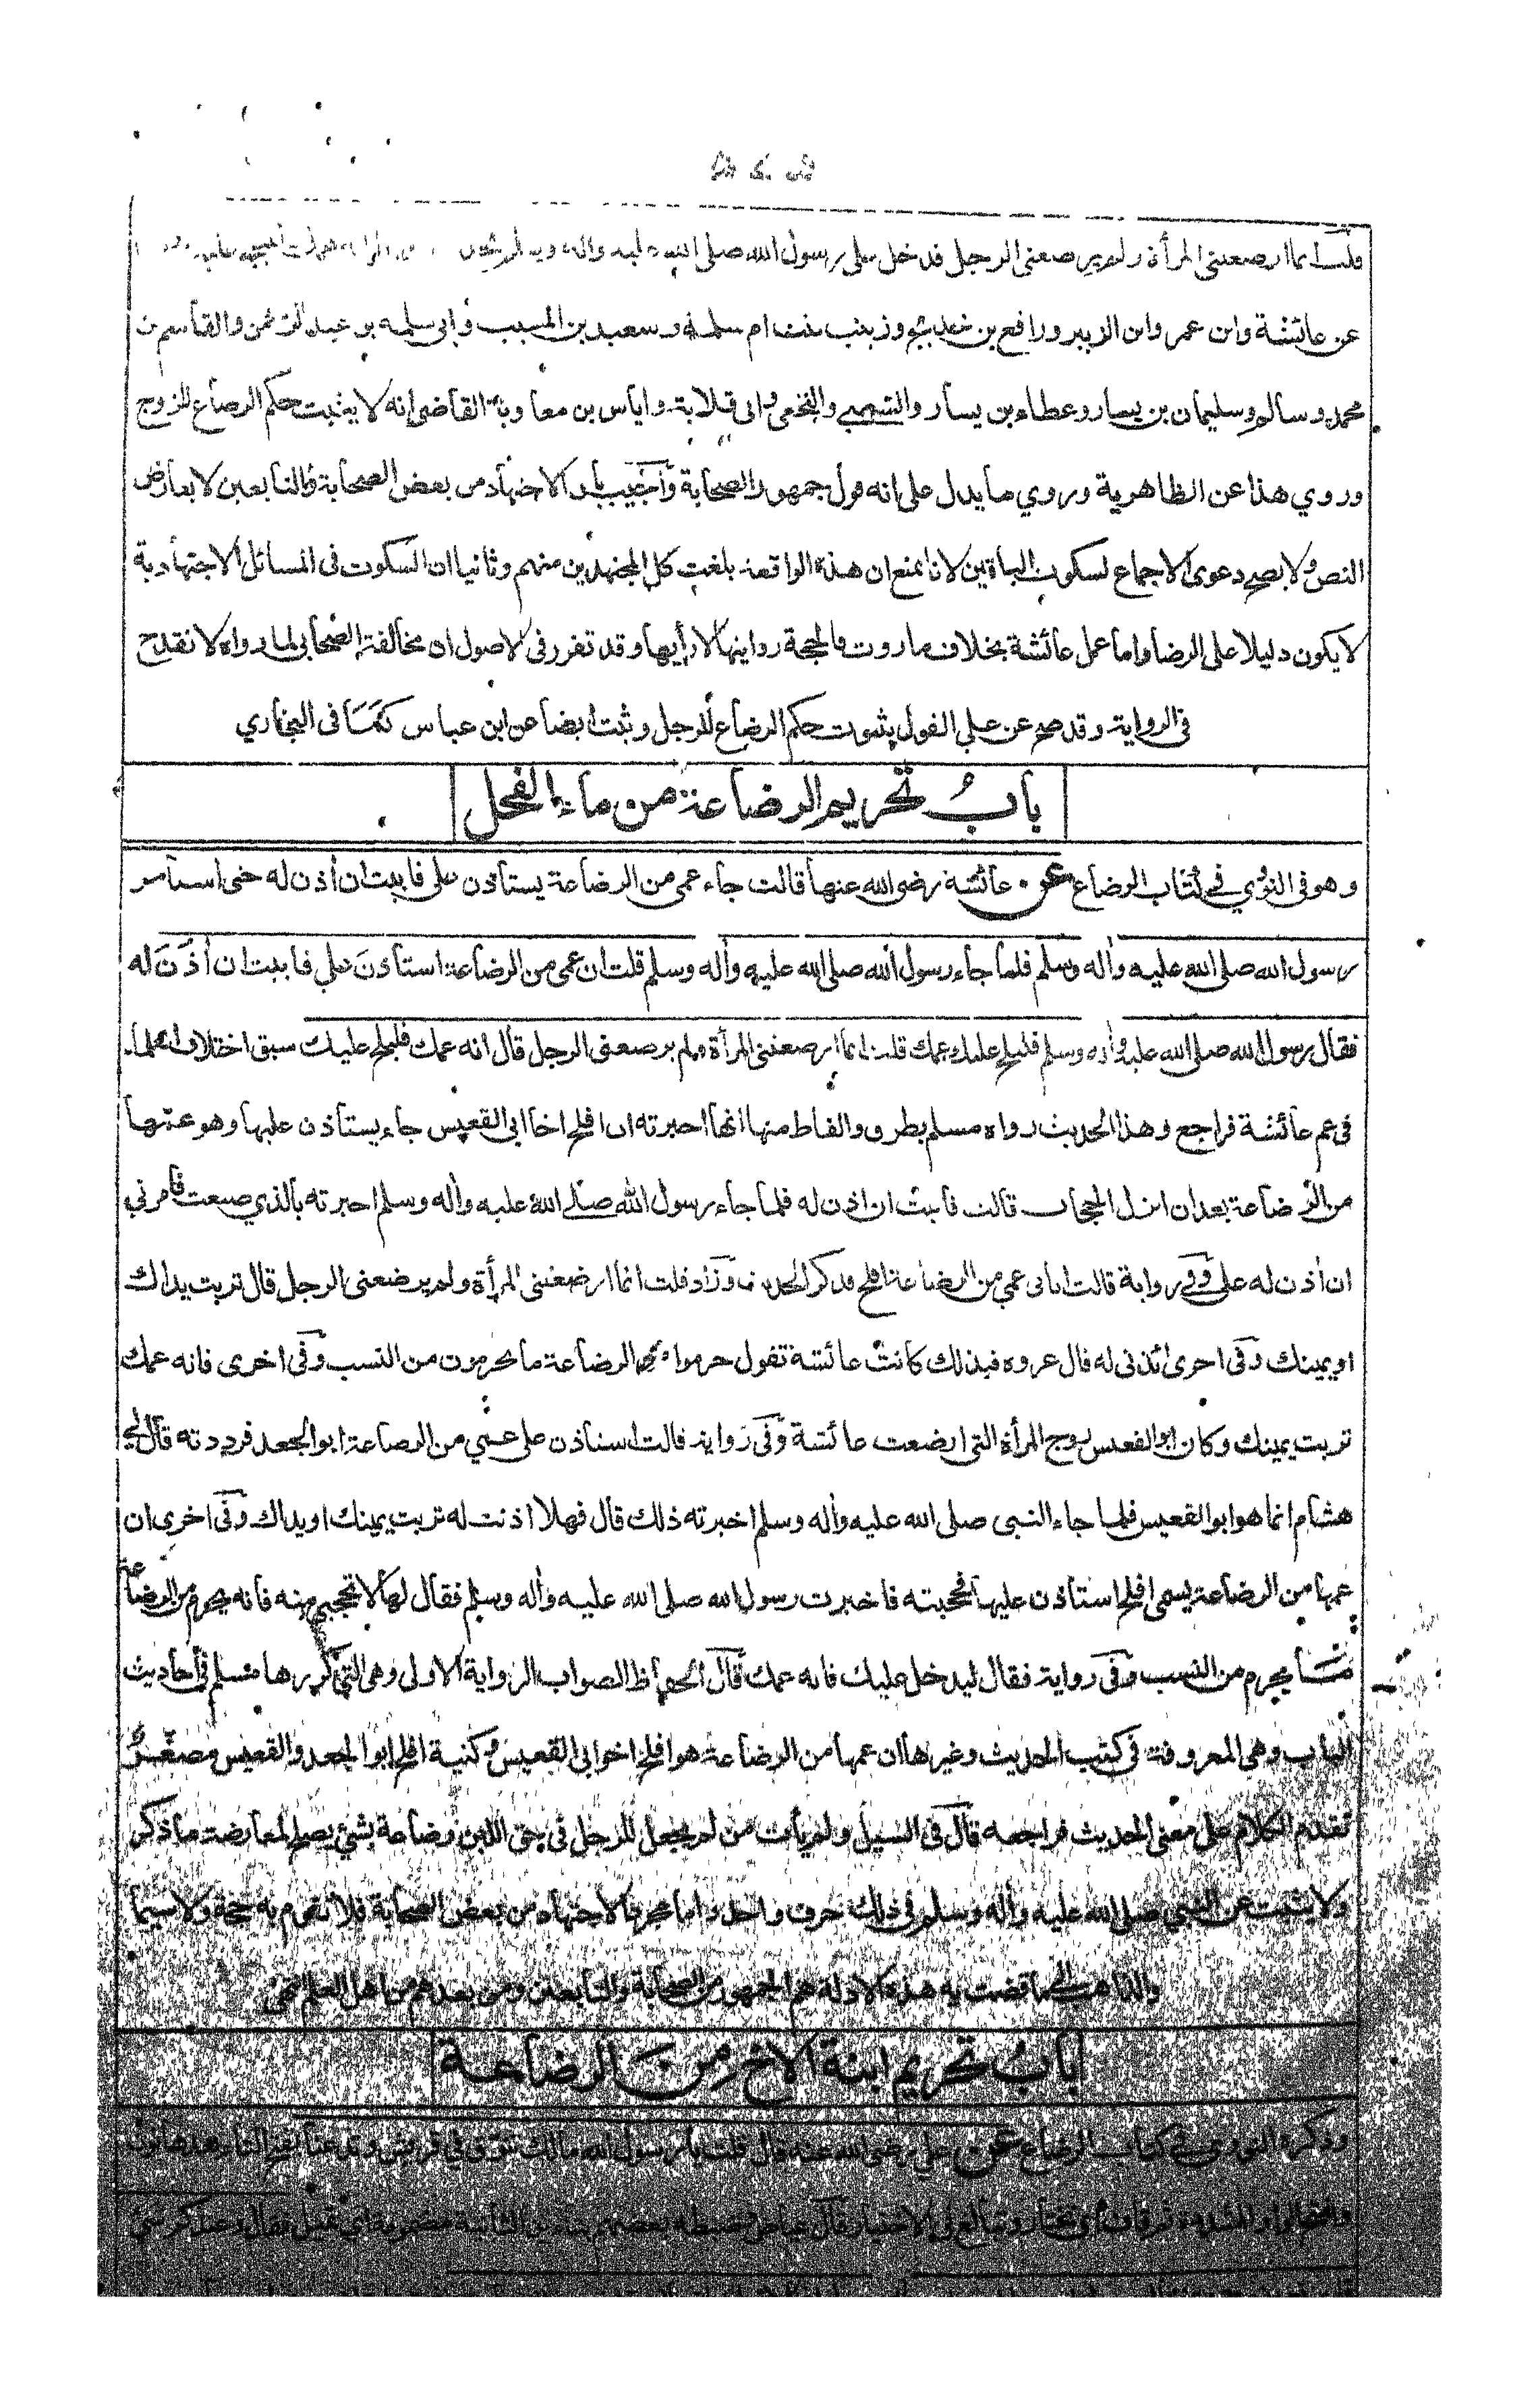 قلت انما ارضعتني المرأة ولم يرضعني الرجل فدخل علي رسول الله صلى الله عليه واله وسلم
عن عائشة وابن عمر وابن الزبير ورافع بن خديج وزينب بنت ام سلمة وسعيد بن المسيب وابي سلمة بن عبد الرحمن والقاسم بن
محمد وسالم وسليمان بن يسار وعطاء بن يسار والشعبي والنخعي وابي قلابة واياس بن معاوية القاضي انه لا يثبت حكم الرضاع للزوج
وروي هذا عن الظاهرية وروي ما يدل على انه قول جمهور الصحابة وأجيب بان الاجتهاد من بعض الصحابة والتابعين لا يعارض
النص ولا يصح دعوى الاجماع لسكوت الباقين لانا نمنع ان هذه الواقعة بلغت كل المجتهدين منهم وثانيا ان السكوت في المسائل الاجتهادية
لا يكون دليلا على الرضا واما عمل عائشة بخلاف ما روت فالحجة روايتها لا رأيها وقد تقرر في الاصول ان مخالفة الصحابي لما رواه لا تقدح
في الرواية وقد صح عن علي القول بثبوت حكم الرضاع للرجل وثبت أيضا عن ابن عباس كما في البخاري
بابُ تحريم الرضاعة من ماء الفحل
وهو في النووي في كتاب الرضاع عن عائشة رضي الله عنها قالت جاء عمي من الرضاعة يستأذن علي فابيت ان أذن له حتى استأمر
رسول الله صلى الله عليه واله وسلم فلما جاء رسول الله صلى الله عليه واله وسلم قلت ان عمي من الرضاعة استأذن علي فابيت ان أذن له
فقال رسول الله صلى الله عليه واله وسلم فليلج عليك عمك قلت انما ارضعتني المرأة ولم يرضعني الرجل قال انه عمك فليلج عليك سبق اختلاف العلماء
في عم عائشة فراجع وهذا الحديث رواه مسلم بطرق والفاظ منها انها اخبرته ان افلح اخا ابي القعيس جاء يستأذن عليها وهو عمها
من الرضاعة بعد ان انزل الحجاب قالت فابيت ان اذن له فلما جاء رسول الله صلى الله عليه واله وسلم اخبرته بالذي صنعت فامرني
ان أذن له علي وفي رواية قالت اتاني عمي من الرضاعة افلح فذكر الحديث وزاد قلت انما ارضعتني المرأة ولم يرضعني الرجل قال تربت يداك
او يمينك وفي اخرى ائذني له قال عروة فبذلك كانت عائشة تقول حرموا من الرضاعة ما يحرمون من النسب وفي اخرى فانه عمك
تربت يمينك وكان ابو القعيس زوج المرأة التي ارضعت عائشة وفي رواية قالت استاذن علي عمي من الرضاعة ابو الجعد فرددته قال لي
هشام انما هو ابو القعيس فلما جاء النبي صلى الله عليه واله وسلم اخبرته ذلك قال فهلا اذنت له تربت يمينك او يداك وفي اخرى ان
عمها من الرضاعة يسمى افلح استاذن عليها فحجبته فاخبرت رسول الله صلى الله عليه واله وسلم فقال لها لا تحتجبي منه فانه يحرم من الرضاعة
ما يحرم من النسب وفي رواية فقال ليدخل عليك فانه عمك قال الحفاظ الصواب الرواية الاولى وهي التي كررها مسلم في أحاديث
الباب وهي المعروفة في كتب الحديث وغيرها ان عمها من الرضاعة هو افلح اخو ابي القعيس وكنية افلح ابو الجعد والقعيس مصغر
تقدم الكلام على معنى الحديث فراجعه قال في السيل ولم يأت من لم يجعل للرجل في حق اللبن رضاعة بشئ يصلح لمعارضة ما ذكر
ولا يثبت عن النبي صلى الله عليه واله وسلم في ذلك حرف واحد واما مجرد الاجتهاد من بعض الصحابة فلا تقوم به حجة ولا سيما
والذاهب الى ما قضت به هذه الادلة هم الجمهور من الصحابة والتابعين ومن بعدهم من اهل العلم انتهى
بابُ تحريم ابنة الاخ من الرضاعة
وذكره النووي في كتاب الرضاع عن علي رضي الله عنه قال قلت يا رسول الله مالك تنوق في قريش وتدعنا بفتح التاء